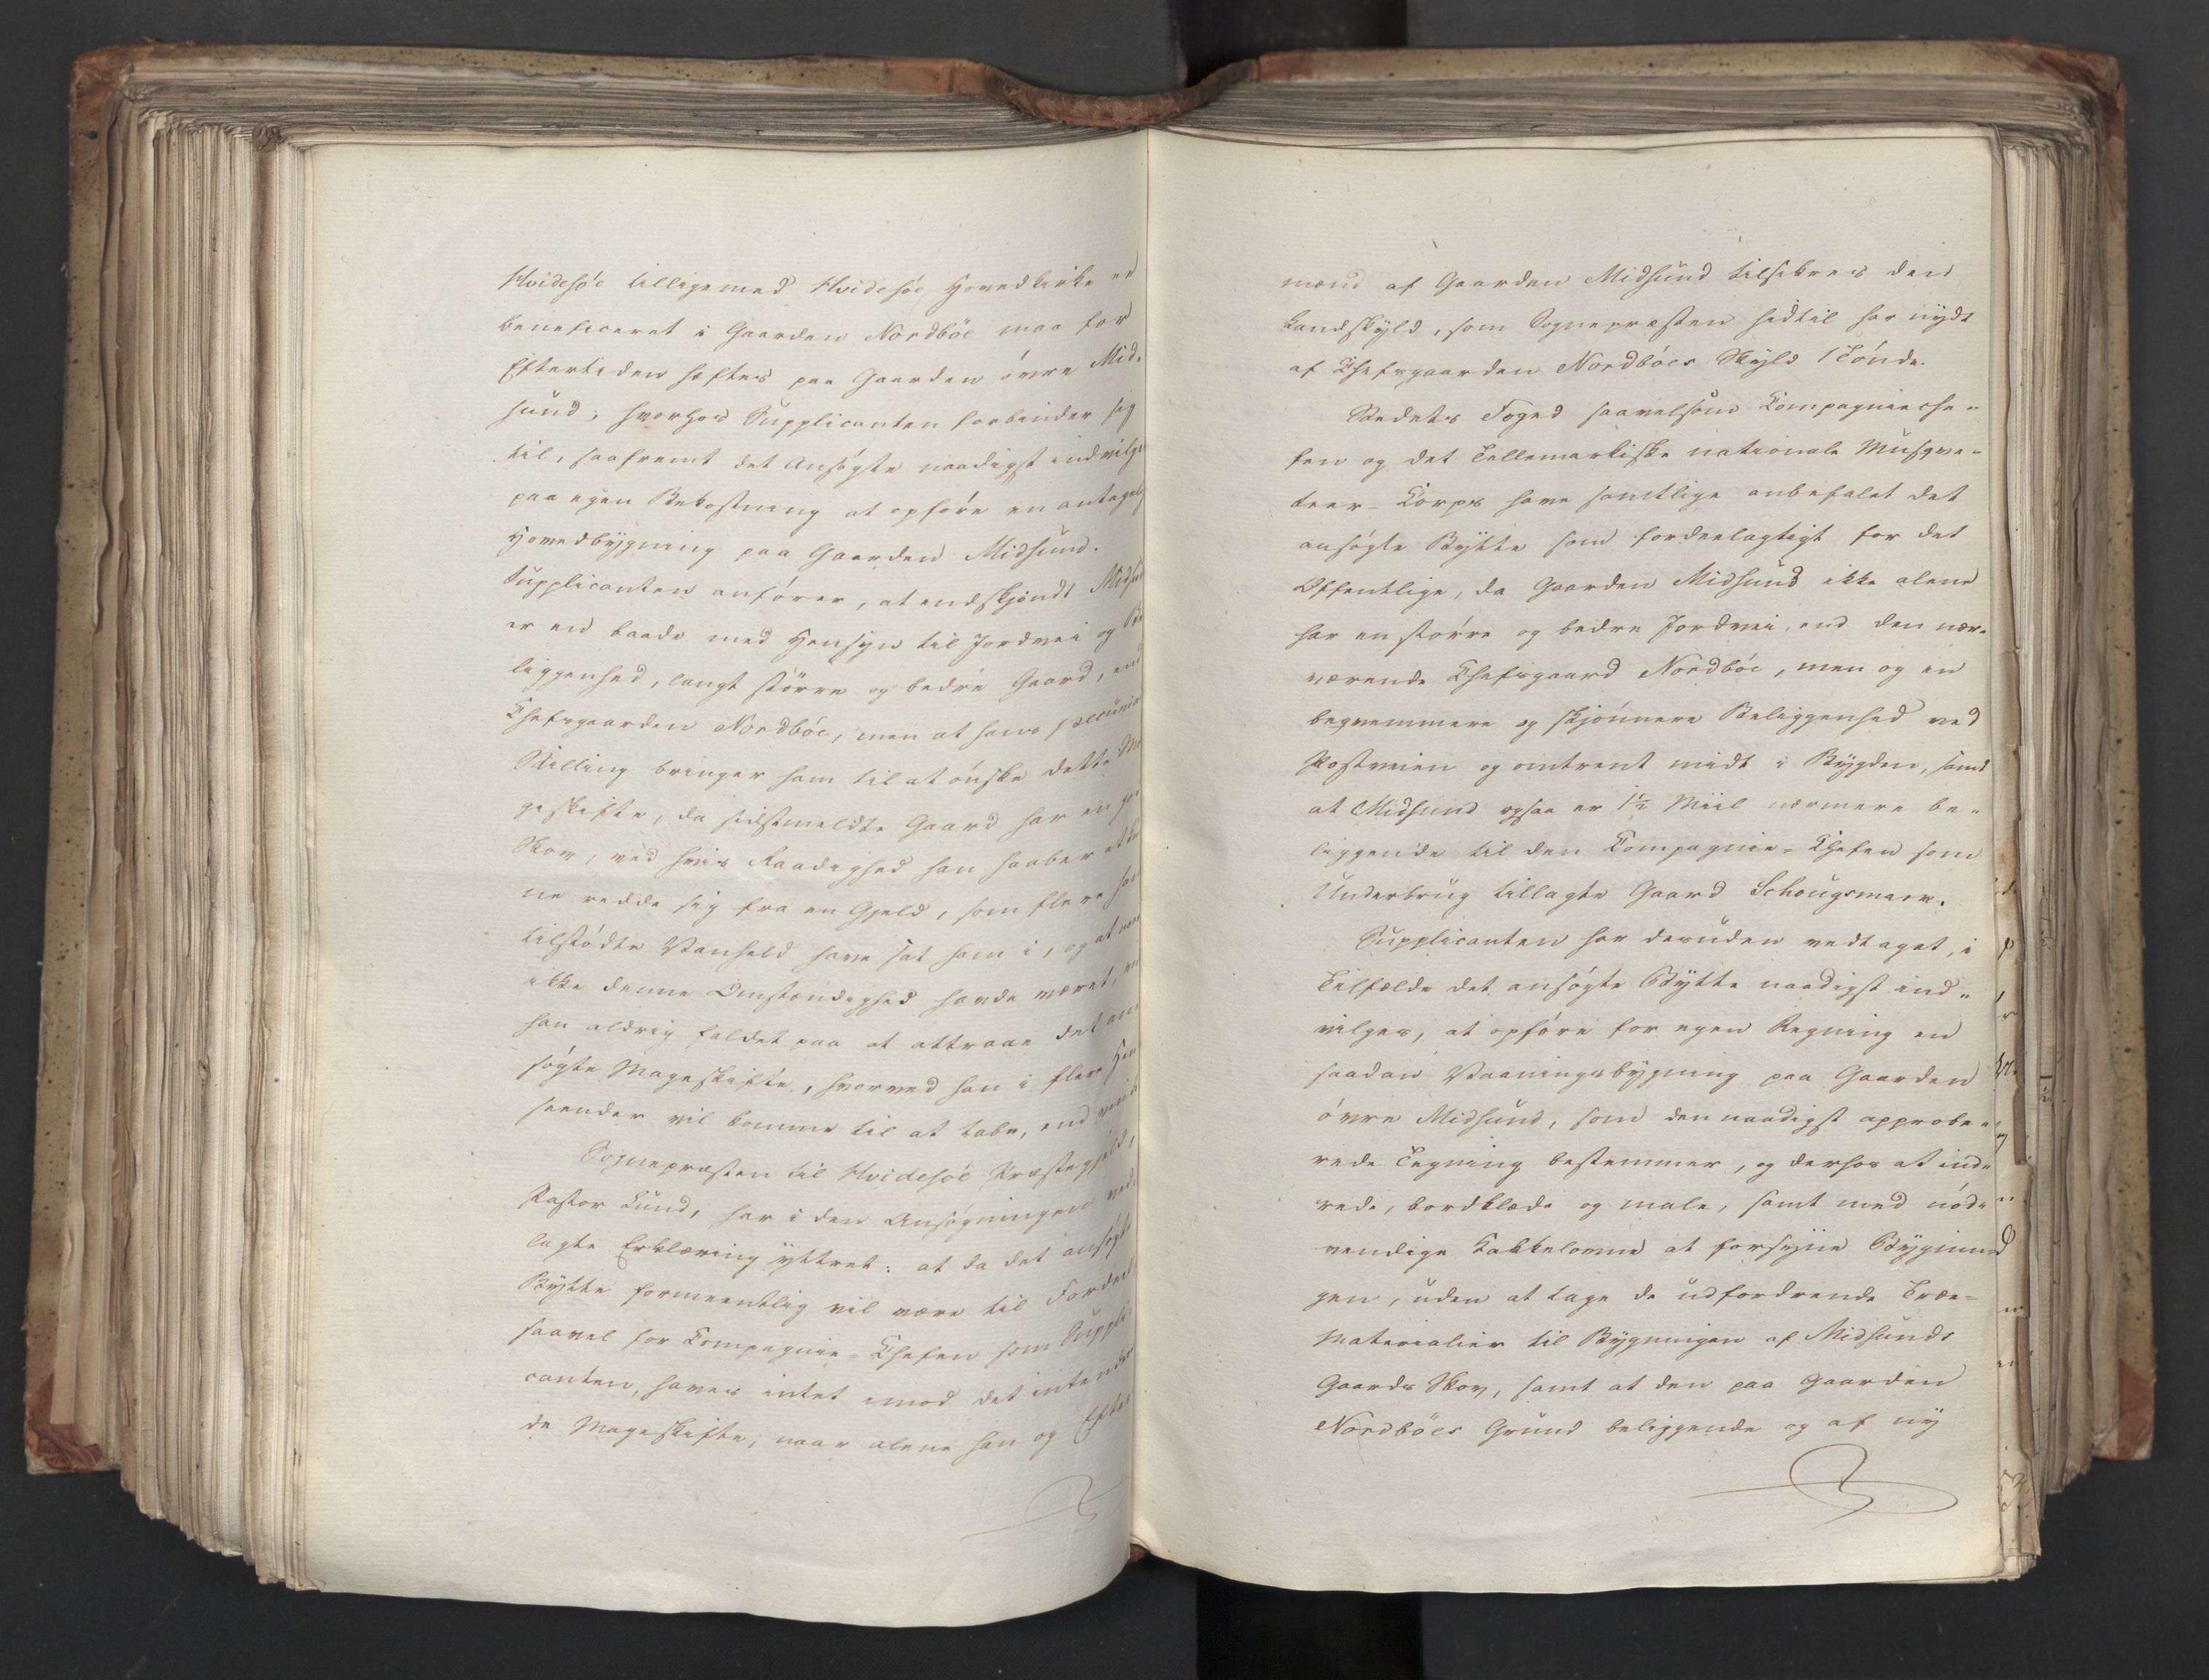 Hvidesøe tilligemed Hvidesøe Hovedkirke er
beneficeret i Gaarden Nordbøe maa for
Eftertiden heftes paa Gaarden øvre Mid-
sund, hvorhos Supplicanten forbinder sig
til, saafremt det Ansøgte naadigst indvilges
paa egen Bekostning at opføre en antagelig
Hovedbygning paa Gaarden Midsund.
Supplicanten anfører, at endskjøndt Midsund
er en baade med Hensyn til Jordvei og Be
liggenhed, langt større og bedre Gaard, end
Chefsgaarden Nordbøe, men at hans pecuniaire
Stilling bringer ham til at ønske dette Ma
geskifte, da sidstmeldte Gaard har en god
Skov, ved hvis Raadighed han haaber at kun
ne redde sig fra en Gjeld, som flere ham
tilstødte Vanheld have sat ham i, og at
ikke denne Omstændighed havde været, var
han aldrig faldet paa at attraae det an
søgte Mageskifte, hvorved han i flere Hen
seender vil komme til at tabe, end vinde
Sognepræsten til Hvidesøe Præstegjeld,
Pastor Lund, har i den Ansøgningen ved
lagte Erklæring yttret: at da det ansøgte
Bytte formeentlig vil være til Fordeel
saavel for Compagnie-Chefen som Suppli
canten, haves intet imod det intendere
de Mageskifte, naar alene han og Efter
mænd af Gaarden Midsund tilsikres den
Landskyld, som Sognepræsten hidtil har nydt
af Chefsgaarden Nordbøes Skyld 1 Tønde.
Stedets Foged saavelsom Compagnieche-
fen og det Tellemarkiske nationale Musqve-
teer-Corps have samtlige anbefalet det
ansøgte Bytte som fordeelagtigt for det
Offentlige, da Gaarden Midsund ikke alene
har en større og bedre Jordvei, end den nær-
værende Chefsgaard Nordbøe, men og en
beqvemmere og skjønnere Beliggenhed ved
Postveien og omtrent midt i Bygden, samt
at Midsund ogsaa er 1½ Miil nærmere be-
liggende til den Compagnie-Chefen som
Underbrug tillagte Gaard Schougsmark.
Supplicanten har desuden vedtaget, i
Tilfælde det ansøgte Bytte naadigst ind-
vilges, at opføre for egen Regning en
saadan Vaaningsbygning paa Gaarden
øvre Midsund, som den naadigst approbe-
rede Tegning bestemmer, og derhos at ind-
rede, bordklæde og male, samt med nød-
vendige Kakkelovne at forsyne Bygnin
gen, uden at tage de udfordrende Træe-
Materialier til Bygningen af Midsunds
Gaards Skov, samt at den paa Gaarden
Nordbøes Grund beliggende og af ny